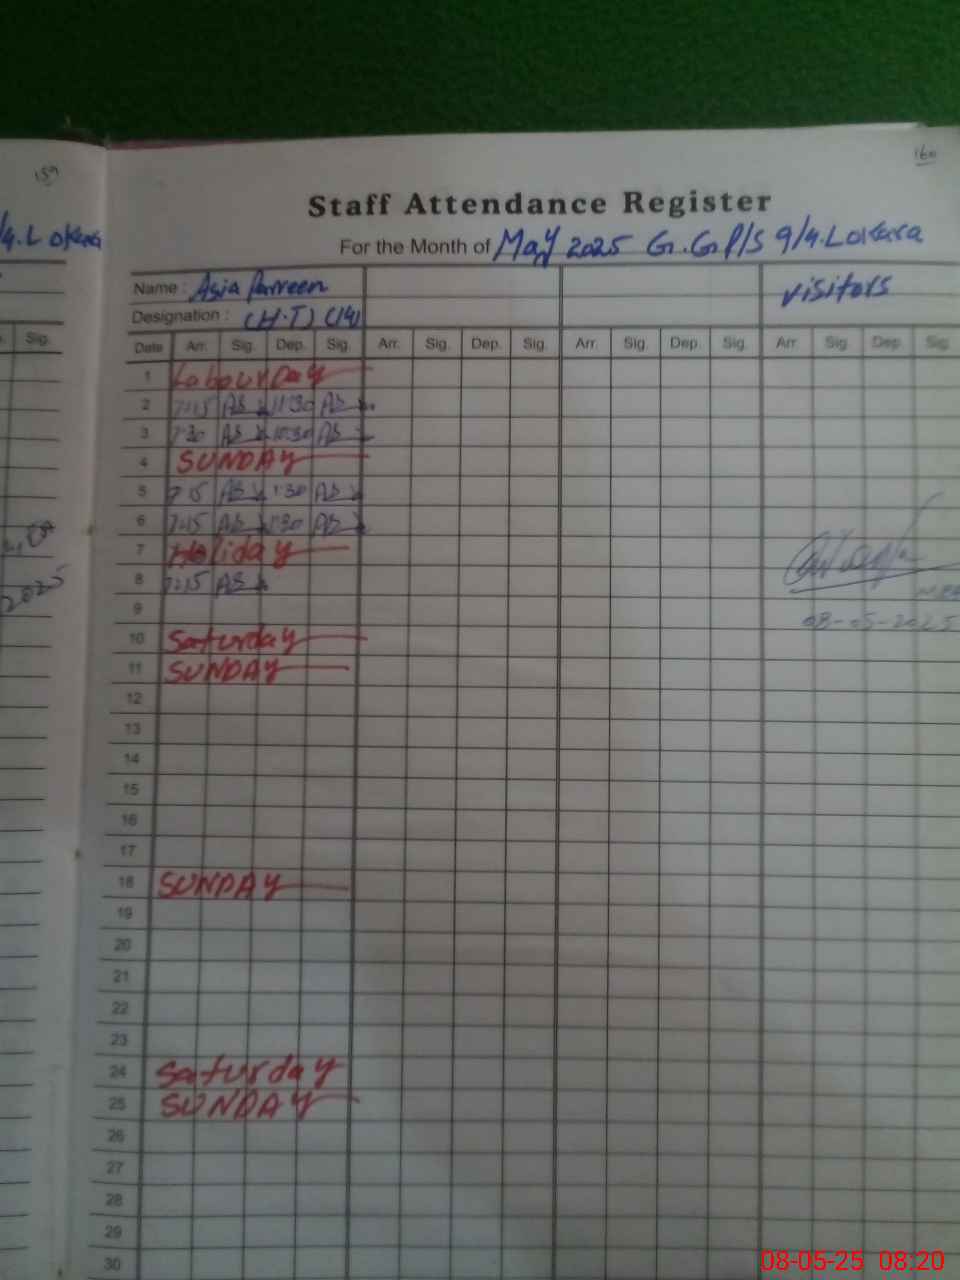 159
160
Staff Attendance Register
For the Month of May 2025 G.G.P/S 9/4.L Okara
/4.L Okara
Name : Asia Parveen
visitors
Designation : (H.T) (14)
Sig.
Date Arr. Sig. Dep. Sig. Arr. Sig. Dep. Sig. Arr. Sig. Dep. Sig. Arr Sig. Dep. Sig.
1 Labour Day
2 7:15 AB 11:30 AB
3 7:30 AB 10:30 AB
4 SUNDAY
5 7:15 AB 1:30 AB
6 7:15 AB 1:30 AB
7 Holiday
8 7:15 AB
2025
9
08-05-2025
10 Saturday
11 SUNDAY
12
13
14
15
16
17
18 SUNDAY
19
20
21
22
23
24 Saturday
25 SUNDAY
26
27
28
29
30
08-05-25 08:20